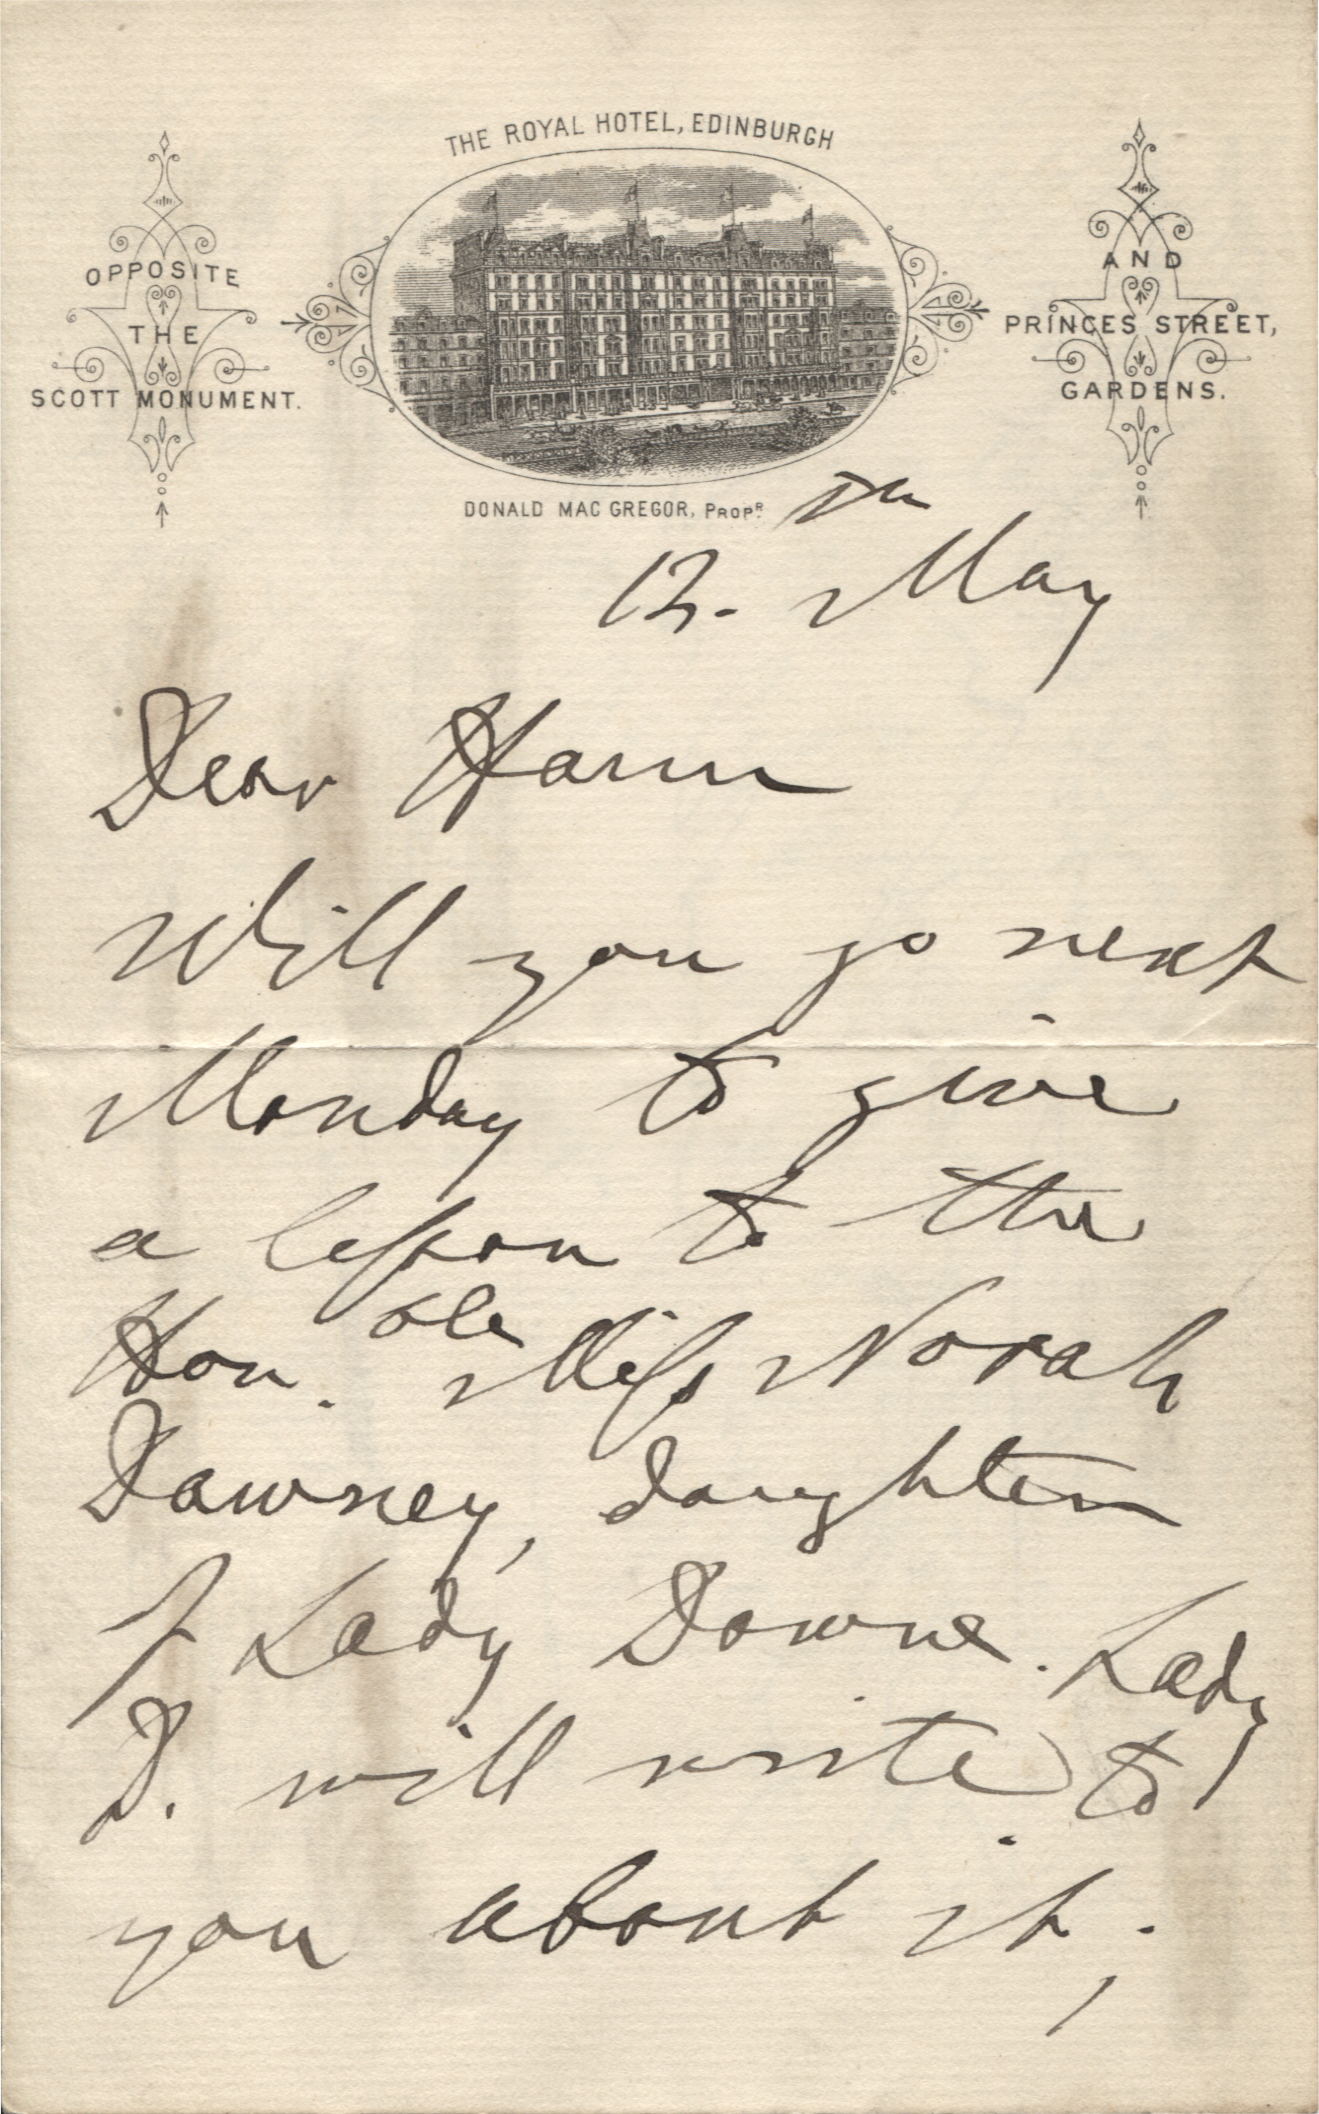 THE ROYAL HOTEL, EDINBURGH
OPPOSITE
THE
SCOTT MONUMENT.
AND
PRINCES STREET,
GARDENS.
DONALD MAC GREGOR, PROPR.
12th May
Dear Hann
Will you go next
Monday to give
a lesson to the
Honble. Miss Norah
Dawney, daughter
of Lady Downe. Lady
D. will write to
you about it;